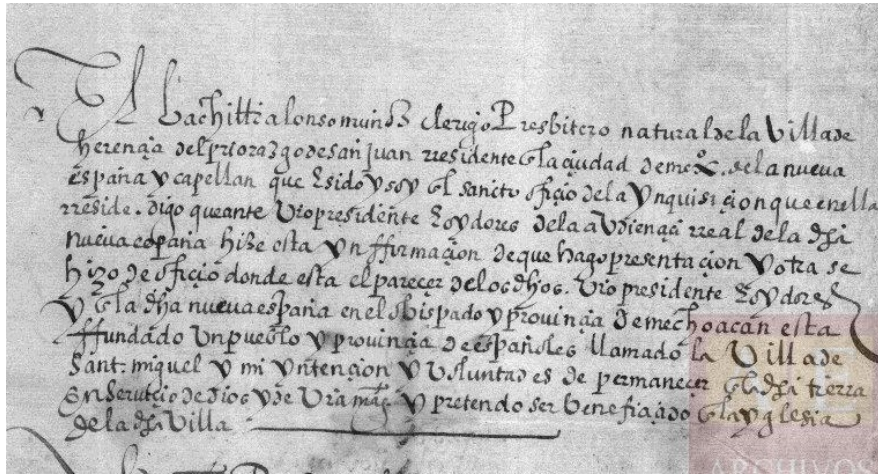 El bachiller alonso munoz clerigo Presbitero natural de la Villa de
herençia del priorazgo de san juan rresidente en la ciudad de mexco. de la nueva
españa y capellan que e sido y soy del sancto oficio de la ynquisiçion que en ella
rreside. digo que ante vro presidente E oydores de la avdiençia rreal de la dha
nueva españa hize esta ynfformaçion de que hago presentacion y otra se
hizo de oficio donde esta el pareçer de los dhos. vro presidente E oydores
y en la dha nueva españa en el obispado y provinçia de mechoacan esta
ffundado un pueblo y provinçia de españoles llamado la Villa de
sant. miguel y mi yntencion y voluntad es de permaneçer en la dha tierra
en seruiçio de dios y de vra magt y pretendo ser beneficiado en la yglesia
de la dha Villa
ARCHIVOS